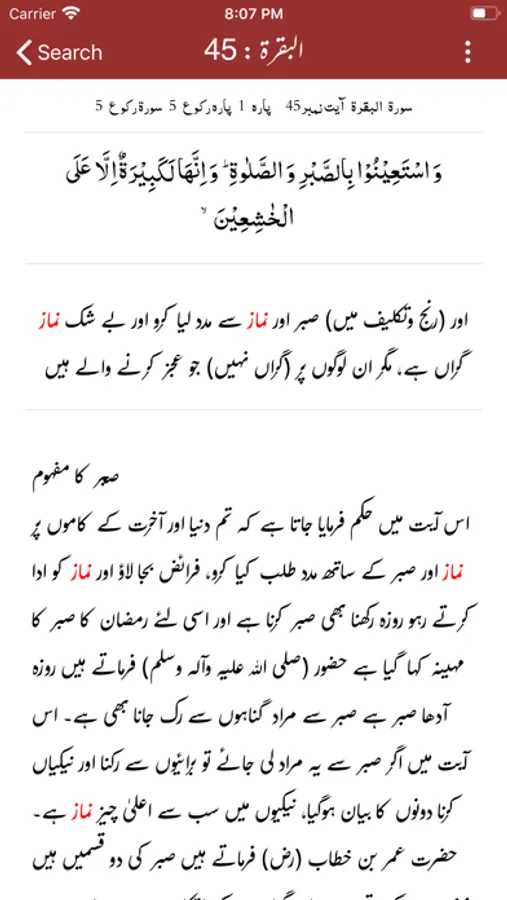 Carrier 8:07 PM
Search البقرة : 45
سورۃ البقرۃ آیت نمبر45 پارہ 1 پارہ رکوع 5 سورۃ رکوع 5
وَاسْتَعِیْنُوْا بِالصَّبْرِ وَالصَّلٰوةِ ؕ وَاِنَّهَا لَكَبِیْرَةٌ اِلَّا عَلَى
الْخٰشِعِیْنَ ۙ
اور (رنج وتکلیف میں) صبر اور نماز سے مدد لیا کرو اور بے شک نماز
گراں ہے، مگر ان لوگوں پر (گراں نہیں) جو عجز کرنے والے ہیں
صبر کا مفہوم
اس آیت میں حکم فرمایا جاتا ہے کہ تم دنیا اور آخرت کے کاموں پر
نماز اور صبر کے ساتھ مدد طلب کیا کرو، فرائض بجا لاؤ اور نماز کو ادا
کرتے رہو روزہ رکھنا بھی صبر کرنا ہے اور اسی لئے رمضان کا صبر کا
مہینہ کہا گیا ہے حضور (صلی اللہ علیہ وآلہ وسلم) فرماتے ہیں روزہ
آدھا صبر ہے صبر سے مراد گناہوں سے رک جانا بھی ہے۔ اس
آیت میں اگر صبر سے یہ مراد لی جائے تو برائیوں سے رکنا اور نیکیاں
کرنا دونوں کا بیان ہوگیا، نیکیوں میں سب سے اعلیٰ چیز نماز ہے۔
حضرت عمر بن خطاب (رض) فرماتے ہیں صبر کی دو قسمیں ہیں